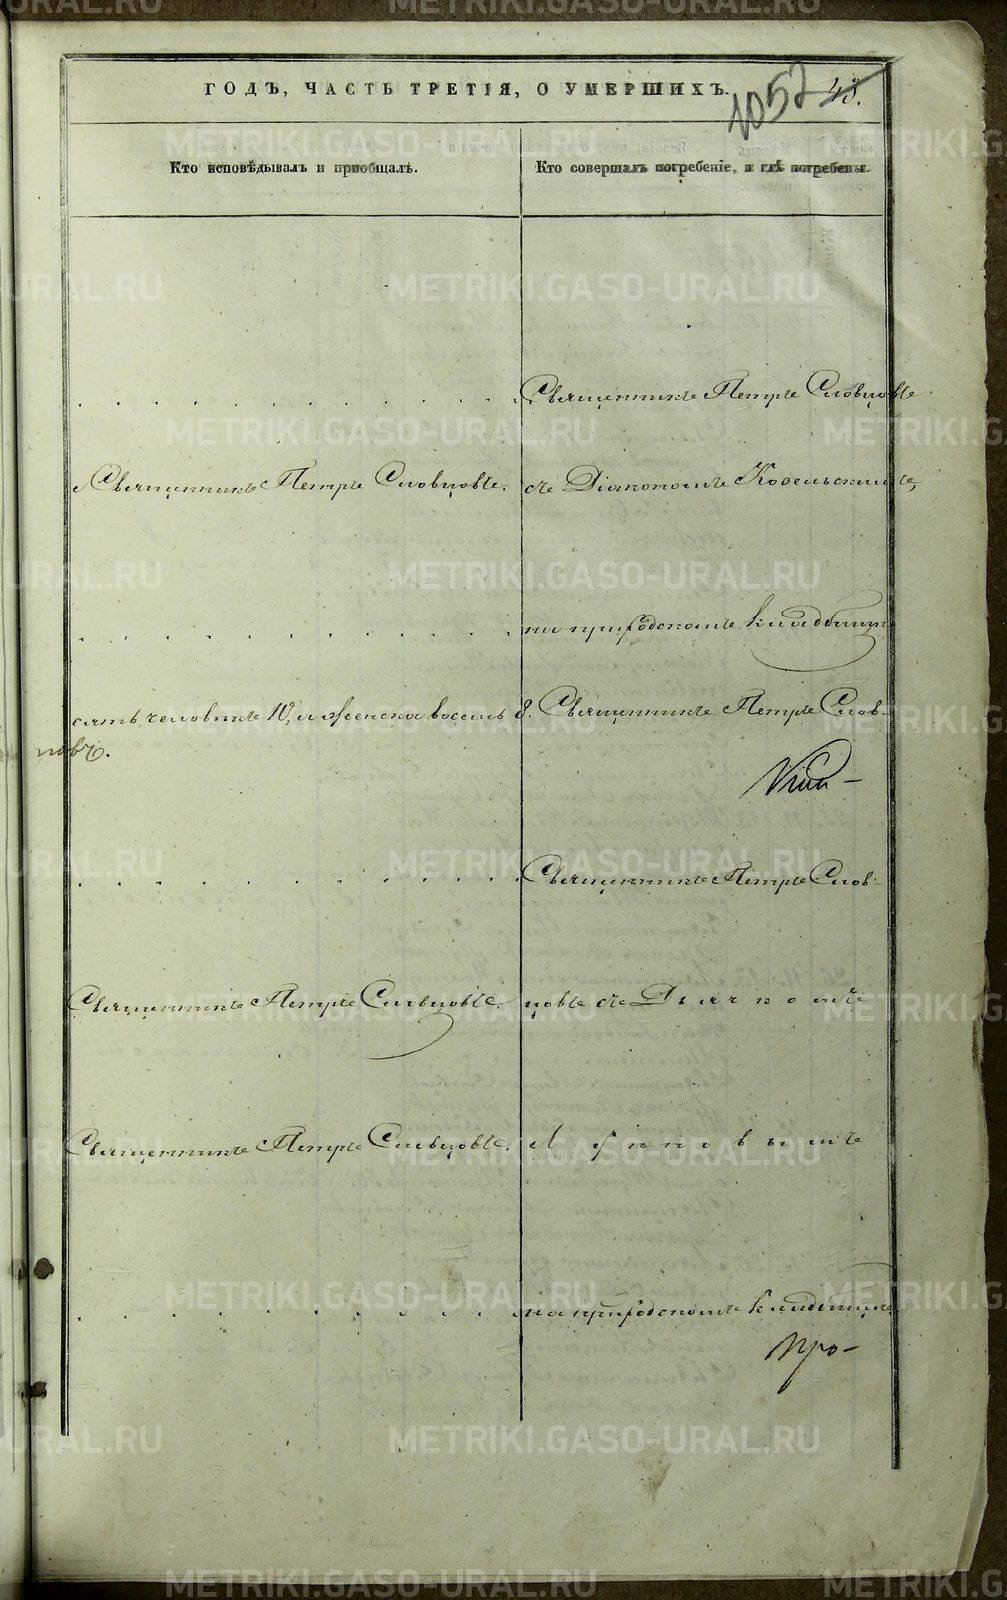 ГОДЪ, ЧАСТЬ ТРЕТІЯ, О УМЕРШИХЪ.
1052 48.
Кто исповѣдывалъ и пріобщалъ.
Кто совершалъ погребеніе, и гдѣ погребены.
Священникъ Петръ Словцовъ
Священникъ Петръ Словцовъ. съ Діакономъ Ковельскимъ,
на приходскомъ кладбищѣ
сять человѣкъ 10, а женска восемь 8. Священникъ Петръ Слов-
цовъ.
Священникъ Петръ Слов-
Священникъ Петръ Словцовъ цовъ съ Дьячкомъ
Священникъ Петръ Словцовъ.
на приходскомъ кладбищѣ
METRIKI.GASO-URAL.RU